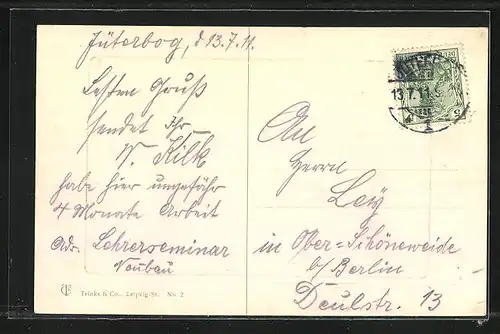 Jüterbog, d 13.7.11.
Besten Gruß
sendet Ihr
W. Kilk
habe hier ungefähr
4 Monate Arbeit
Adr. Lehrerseminar
Neubau
An
Herrn
Ley
in Ober-Schöneweide
b/Berlin
Deulstr. 13
13.7.11.
Trinks & Co., Leipzig-St. No. 2